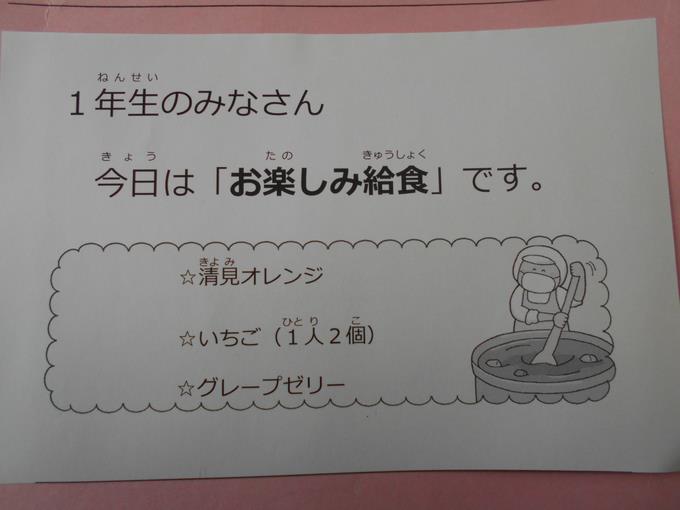 ねんせい
1年生のみなさん
きょう たの きゅうしょく
今日は「お楽しみ給食」です。
きよみ
☆清見オレンジ
ひとり こ
☆いちご（1人2個）
☆グレープゼリー